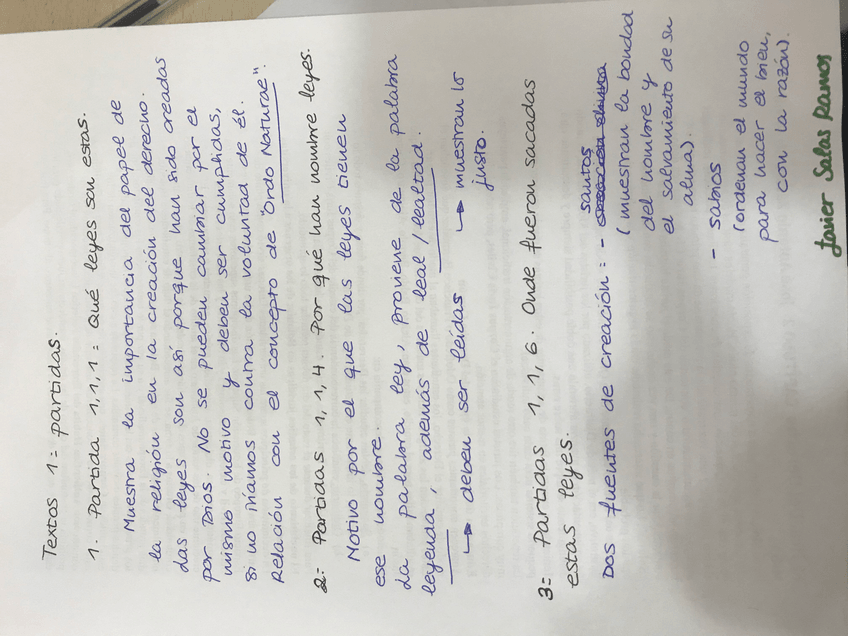 Textos 1= partidas.
1. Partida 1,1,1= Qué leyes son estas.
Muestra la importancia del papel de
la religión en la creación del derecho.
das leyes son así porque han sido creadas
por Dios. No se pueden cambiar por el
mismo motivo y deben ser cumplidas,
si no iríamos contra la voluntad de él.
Relación con el concepto de "Ordo Naturae".
2= Partidas 1,1,4. Por qué han nombre leyes.
Motivo por el que las leyes tienen
ese nombre.
La palabra ley, proviene de la palabra
leyenda, además de leal/lealtad.
↳ deben ser leídas ↳ muestran lo
justo.
3= Partidas 1,1,6. Onde fueron sacadas
estas leyes.
Dos fuentes de creación: - santos
(muestran la bondad
del hombre y
el salvamiento de su
alma).
- sabios
(ordenan el mundo
para hacer el bien,
con la razón).
Javier Salas Ramos